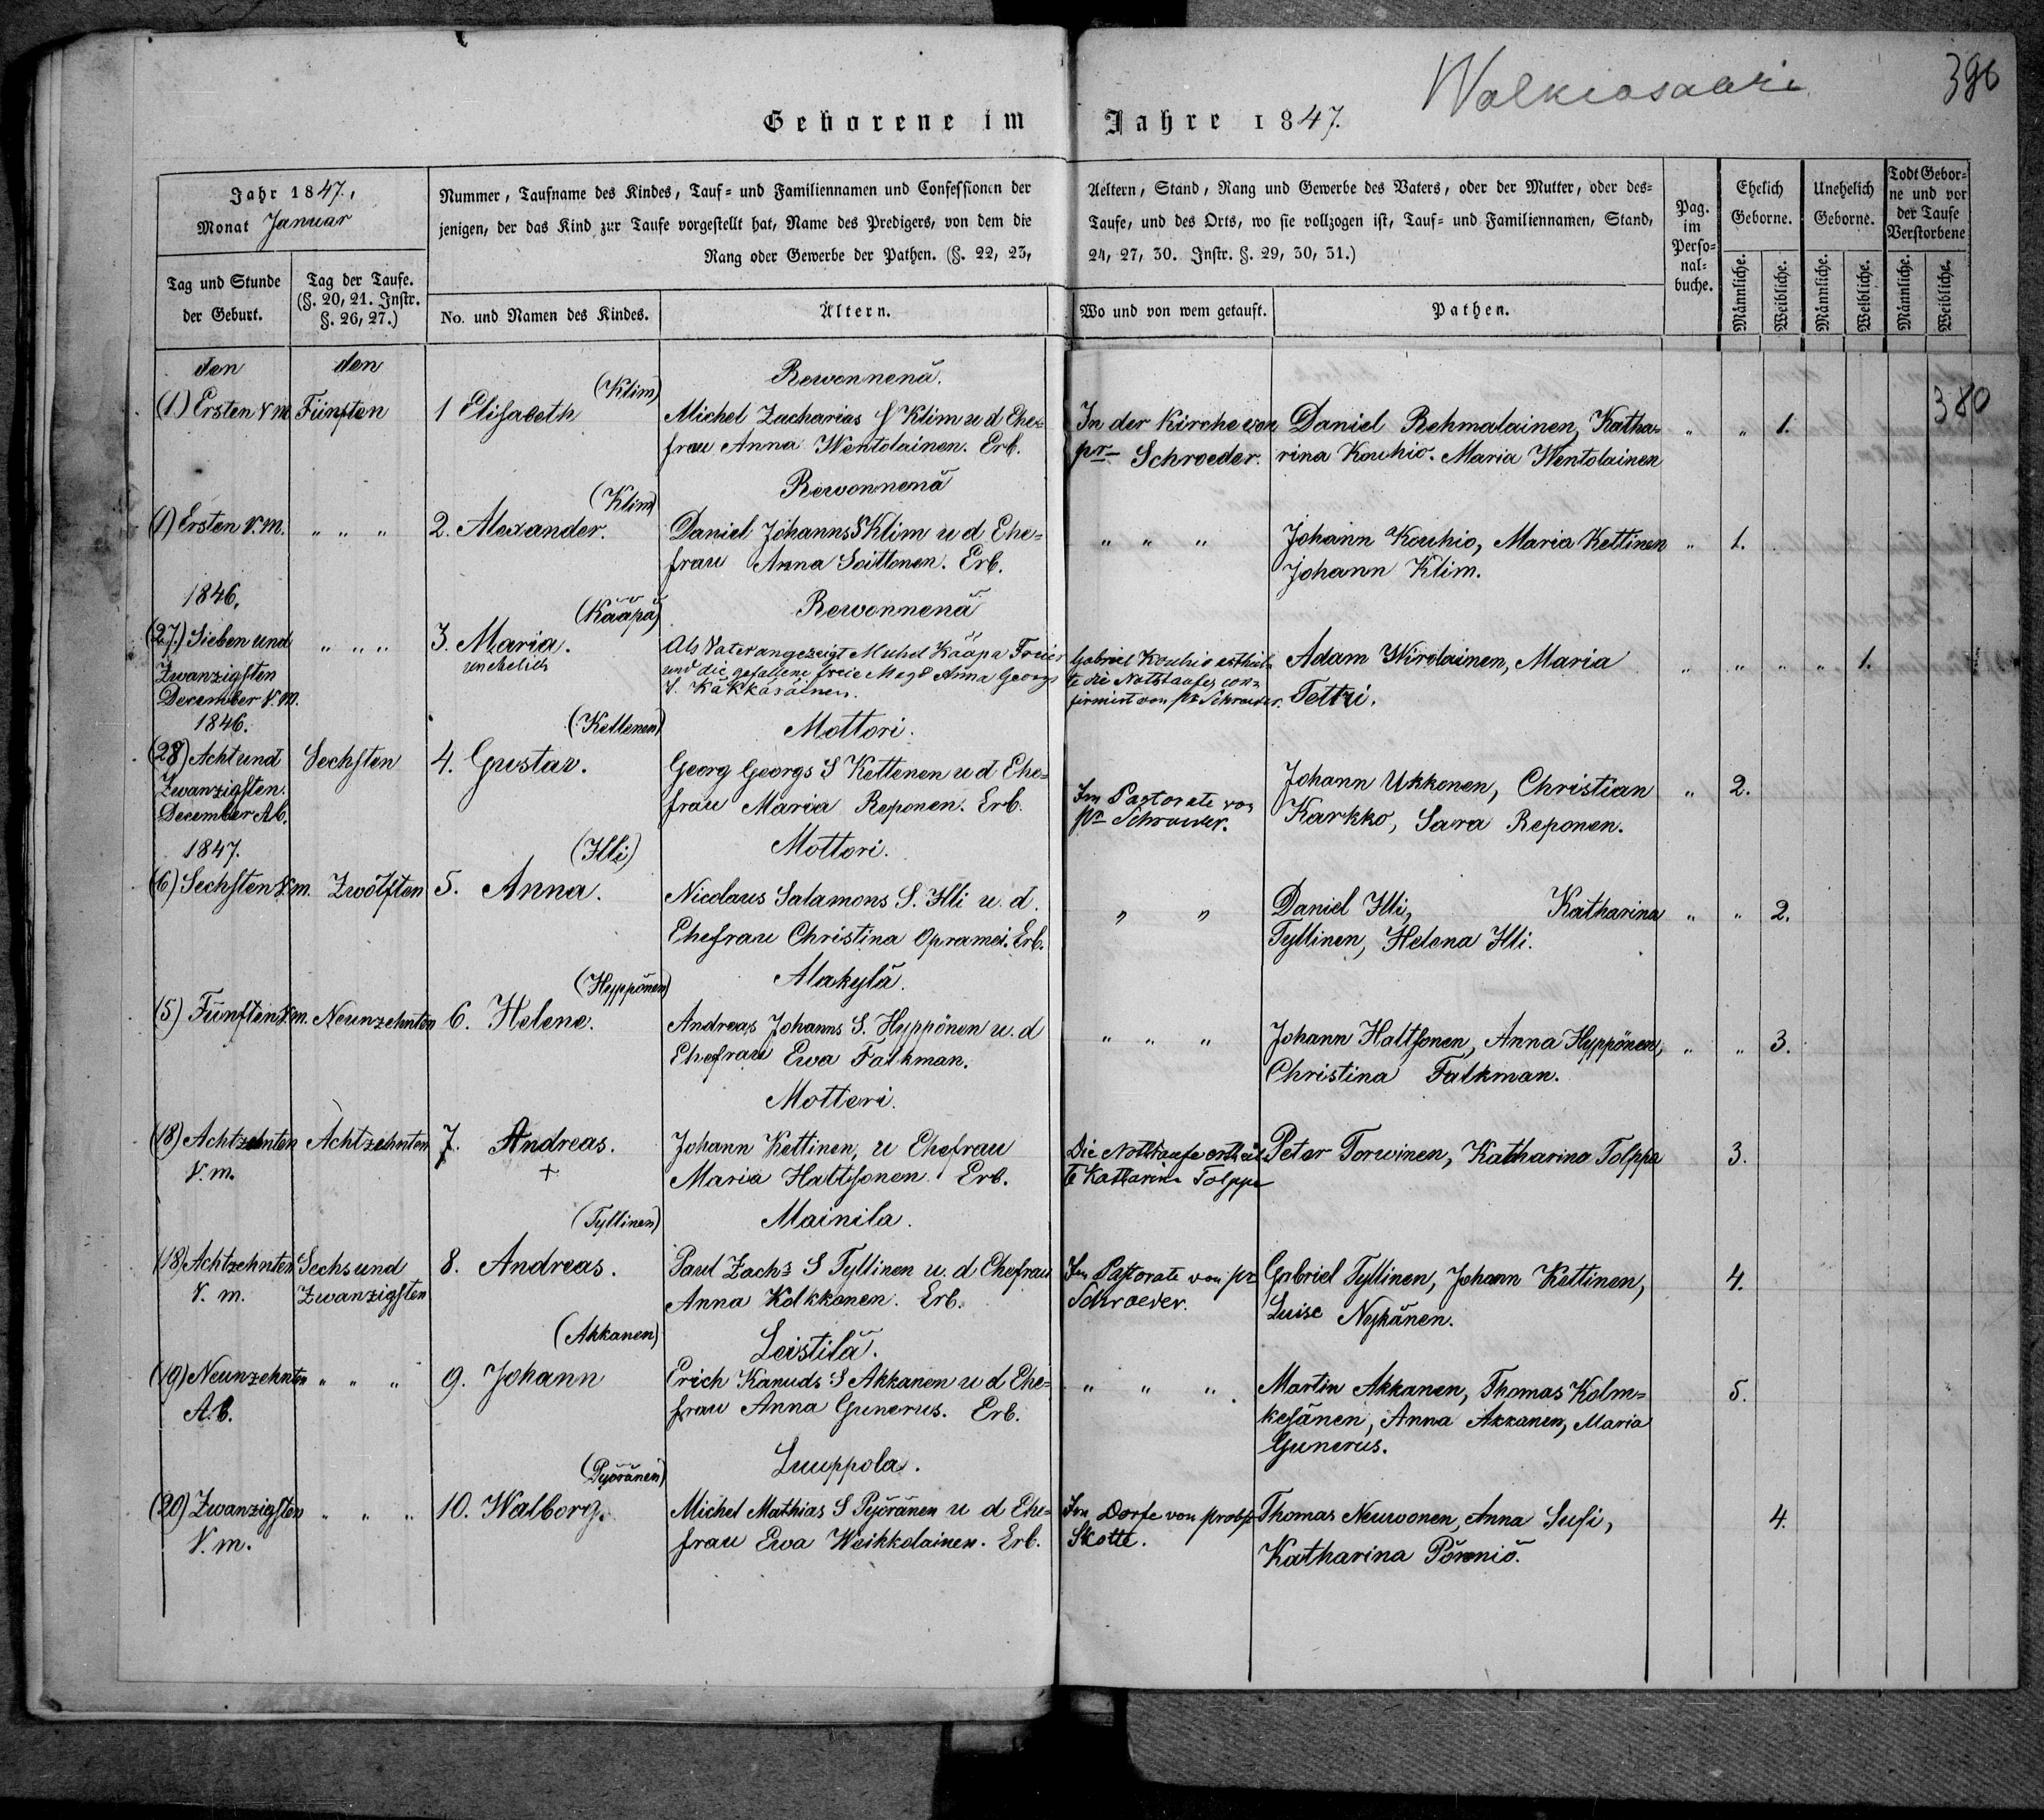 Walkiasaari
396
Geborene im Jahre 1847.
Jahr 1847.,
Monat Januar
Nummer, Taufname des Kindes, Tauf- und Familiennamen und Confessionen der
jenigen, der das Kind zur Taufe vorgestellt hat, Name des Predigers, von dem die
Rang oder Gewerbe der Pathen. (§. 22, 23,
Aeltern, Stand, Rang und Gewerbe des Vaters, oder der Mutter, oder des=
Taufe, und des Orts, wo sie vollzogen ist, Tauf- und Familiennamen, Stand,
24, 27, 30. Instr. §. 29, 30, 31.)
Pag.
im
Perso=
nal=
buche.
Ehelich
Geborne.
Unehelich
Geborne.
Todt Gebor=
ne und vor
der Taufe
Verstorbene
Tag und Stunde
der Geburt.
Tag der Taufe.
(§. 20, 21. Instr.
§. 26, 27.)
No. und Namen des Kindes.
Ältern.
Wo und von wem getauft.
Pathen.
Männliche.
Weibliche.
Männliche.
Weibliche.
Männliche.
Weibliche.
380
den
den
(Klim)
Rewonnenä.
(1) Ersten V m.
Fünften
1 Elisabeth
Michel Zacharias S Klim u d Ehe=
frau Anna Wentolainen. Erb.
In der Kirche von
pr Schroeder.
Daniel Rehmalainen, Katha=
rina Kouhio. Maria Wentolainen
" " 1.
(Klim)
Rewonnenä
(1) Ersten V. m.
" " "
2. Alexander.
Daniel Johanns S Klim u d Ehe=
frau Anna Soittonen. Erb.
" " "
Johann Kouhio, Maria Kettinen
Johann Klim.
" 1.
1846.
(Kääpä)
Rewonnenä
(27.) Sieben und
Zwanzigsten
December V. m.
" " "
3. Maria.
unehelich
Als Vater angezeigt Michel Kääpä
und die gefallene freie Magd Anna Georgs
Gabriel Kouhio ertheil=
te die Nothtaufe, con=
firmirt von pr Schroeder.
Adam Wirolainen, Maria
Tettri.
" " " " 1.
1846.
(Kettenen)
Mottori.
(28) Acht und
Zwanzigsten.
December Ab.
Sechsten
4. Gustav.
Georg Georgs S Kettenen u d Ehe=
frau Maria Reponen. Erb.
Im Pastorate von
pr Schroeder.
Johann Ukkonen, Christian
Karkko, Sara Reponen.
" 2.
1847.
(Illi)
Mottori.
(6) Sechsten V. m.
Zwölften
5. Anna.
Nicolaus Salamons S. Illi u. d.
Ehefrau Christina Opramei. Erb.
" "
Daniel Illi, Katharina
Tyllinen, Helena Illi.
" " 2.
(Hyppönen)
Alakylä.
(5) Fünften V. m.
Neunzehnten
6. Helene.
Andreas Johanns S. Hyppönen u. d
Ehefrau Ewa Falkman.
" " "
Johann Haltsonen, Anna Hyppönen,
Christina Falkman.
" " 3.
Motteri.
(18) Achtzehnten
V. m.
Achtzehnten
7. Andreas.
+
Johann Kettinen, u Ehefrau
Maria Haltsonen. Erb.
Die Nothtaufe ertheil=
te Katharina Tolppa
Peter Torwinen, Katharina Tolppa
3.
(Tyllinen)
Mainila.
(18) Achtzehnten
V. m.
Sechs und
Zwanzigsten
8. Andreas.
Paul Zachs S Tyllinen u. d Ehefrau
Anna Kolkkonen. Erb.
Im Pastorate von pr
Schroeder.
Gabriel Tyllinen, Johann Kettinen,
Luise Nykänen.
4.
(Akkanen)
Leistilä.
(19) Neunzehnten
A. b.
" " "
9. Johann
Erich Kanuds S Akkanen u d Ehe=
frau Anna Gunerus. Erb.
" " "
Martin Akkanen, Thomas Kolm=
kesänen, Anna Akkanen, Maria
Gunerus.
5.
(Pyöränen)
Luuppola.
(20) Zwanzigsten
V. m.
" " "
10. Walborg.
Michel Mathias S Pyöränen u d Ehe=
frau Ewa Weikkolainen. Erb.
Im Dorfe von probst
Skotte.
Thomas Neuwonen, Anna Susi,
Katharina Pönniö.
4.